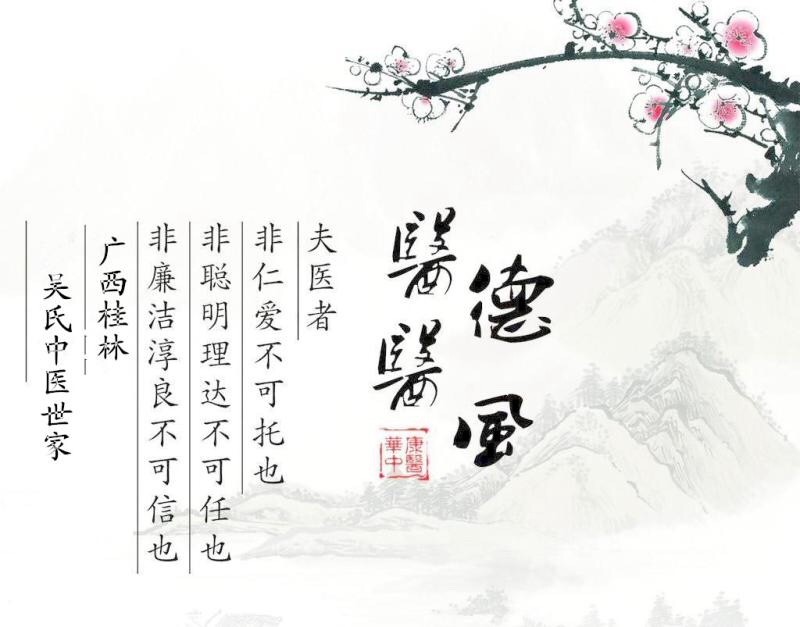 醫德
醫風
華康
中醫
夫医者
非仁爱不可托也
非聪明理达不可任也
非廉洁淳良不可信也
广西桂林
吴氏中医世家